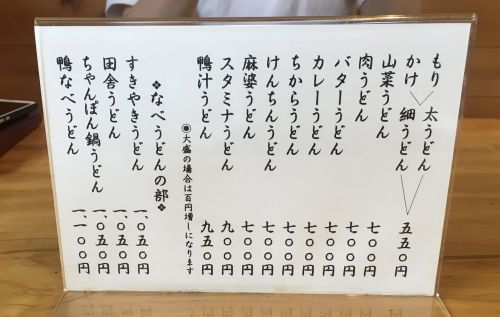 もり 太うどん
かけ 細うどん 五五〇円
山菜うどん 七〇〇円
肉うどん 七〇〇円
バターうどん 七〇〇円
カレーうどん 七〇〇円
ちからうどん 七〇〇円
けんちんうどん 七〇〇円
麻婆うどん 七〇〇円
スタミナうどん 九〇〇円
鴨汁うどん 九五〇円
◎大盛の場合は百円増しになります
❖なべうどんの部❖
すきやきうどん 一、〇五〇円
田舎うどん 一、〇五〇円
ちゃんぽん鍋うどん 一、〇五〇円
鴨なべうどん 一、一〇〇円